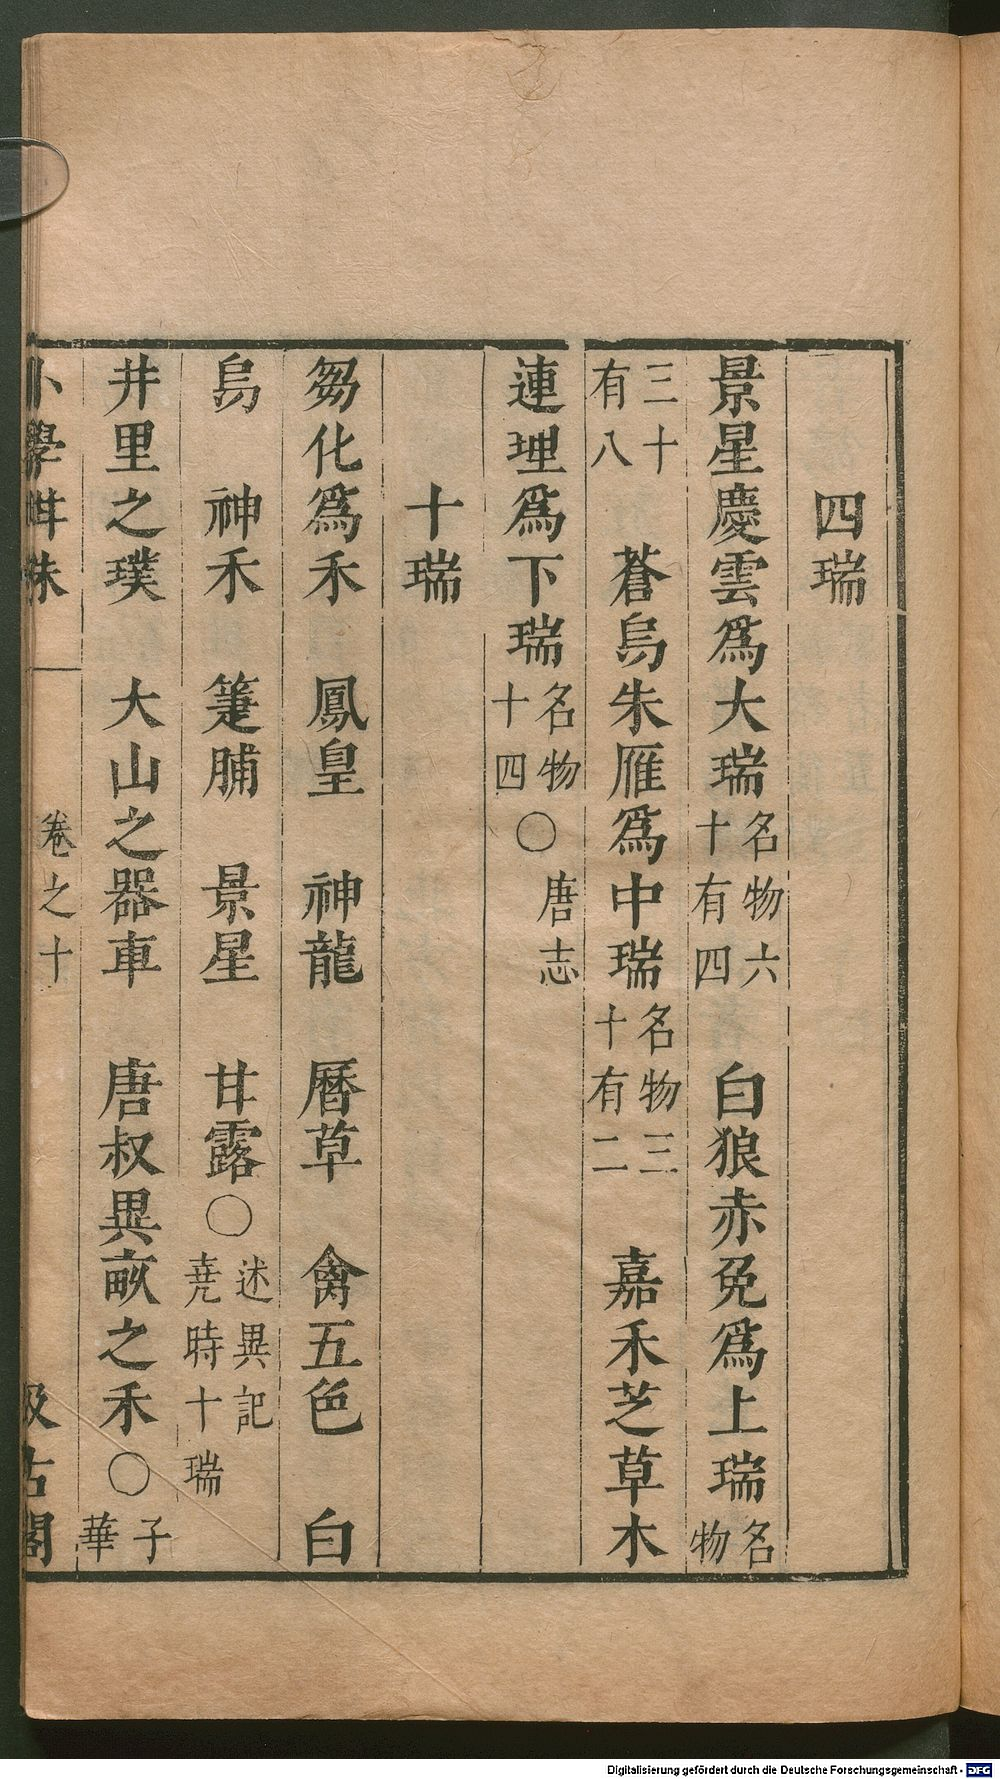 四瑞
景星慶雲爲大瑞名物六十有四 白狼赤兔爲上瑞名物
三十有八 蒼烏朱雁爲中瑞名物三十有二 嘉禾芝草木
連理爲下瑞名物十四○唐志
十瑞
芻化爲禾 鳳皇 神龍 曆草 禽五色 白
烏 神禾 箑脯 景星 甘露○述異記堯時十瑞
井里之璞 大山之器車 唐叔異畝之禾○子華
小學紺珠 卷之十 汲古閣
Digitalisierung gefördert durch die Deutsche Forschungsgemeinschaft - DFG